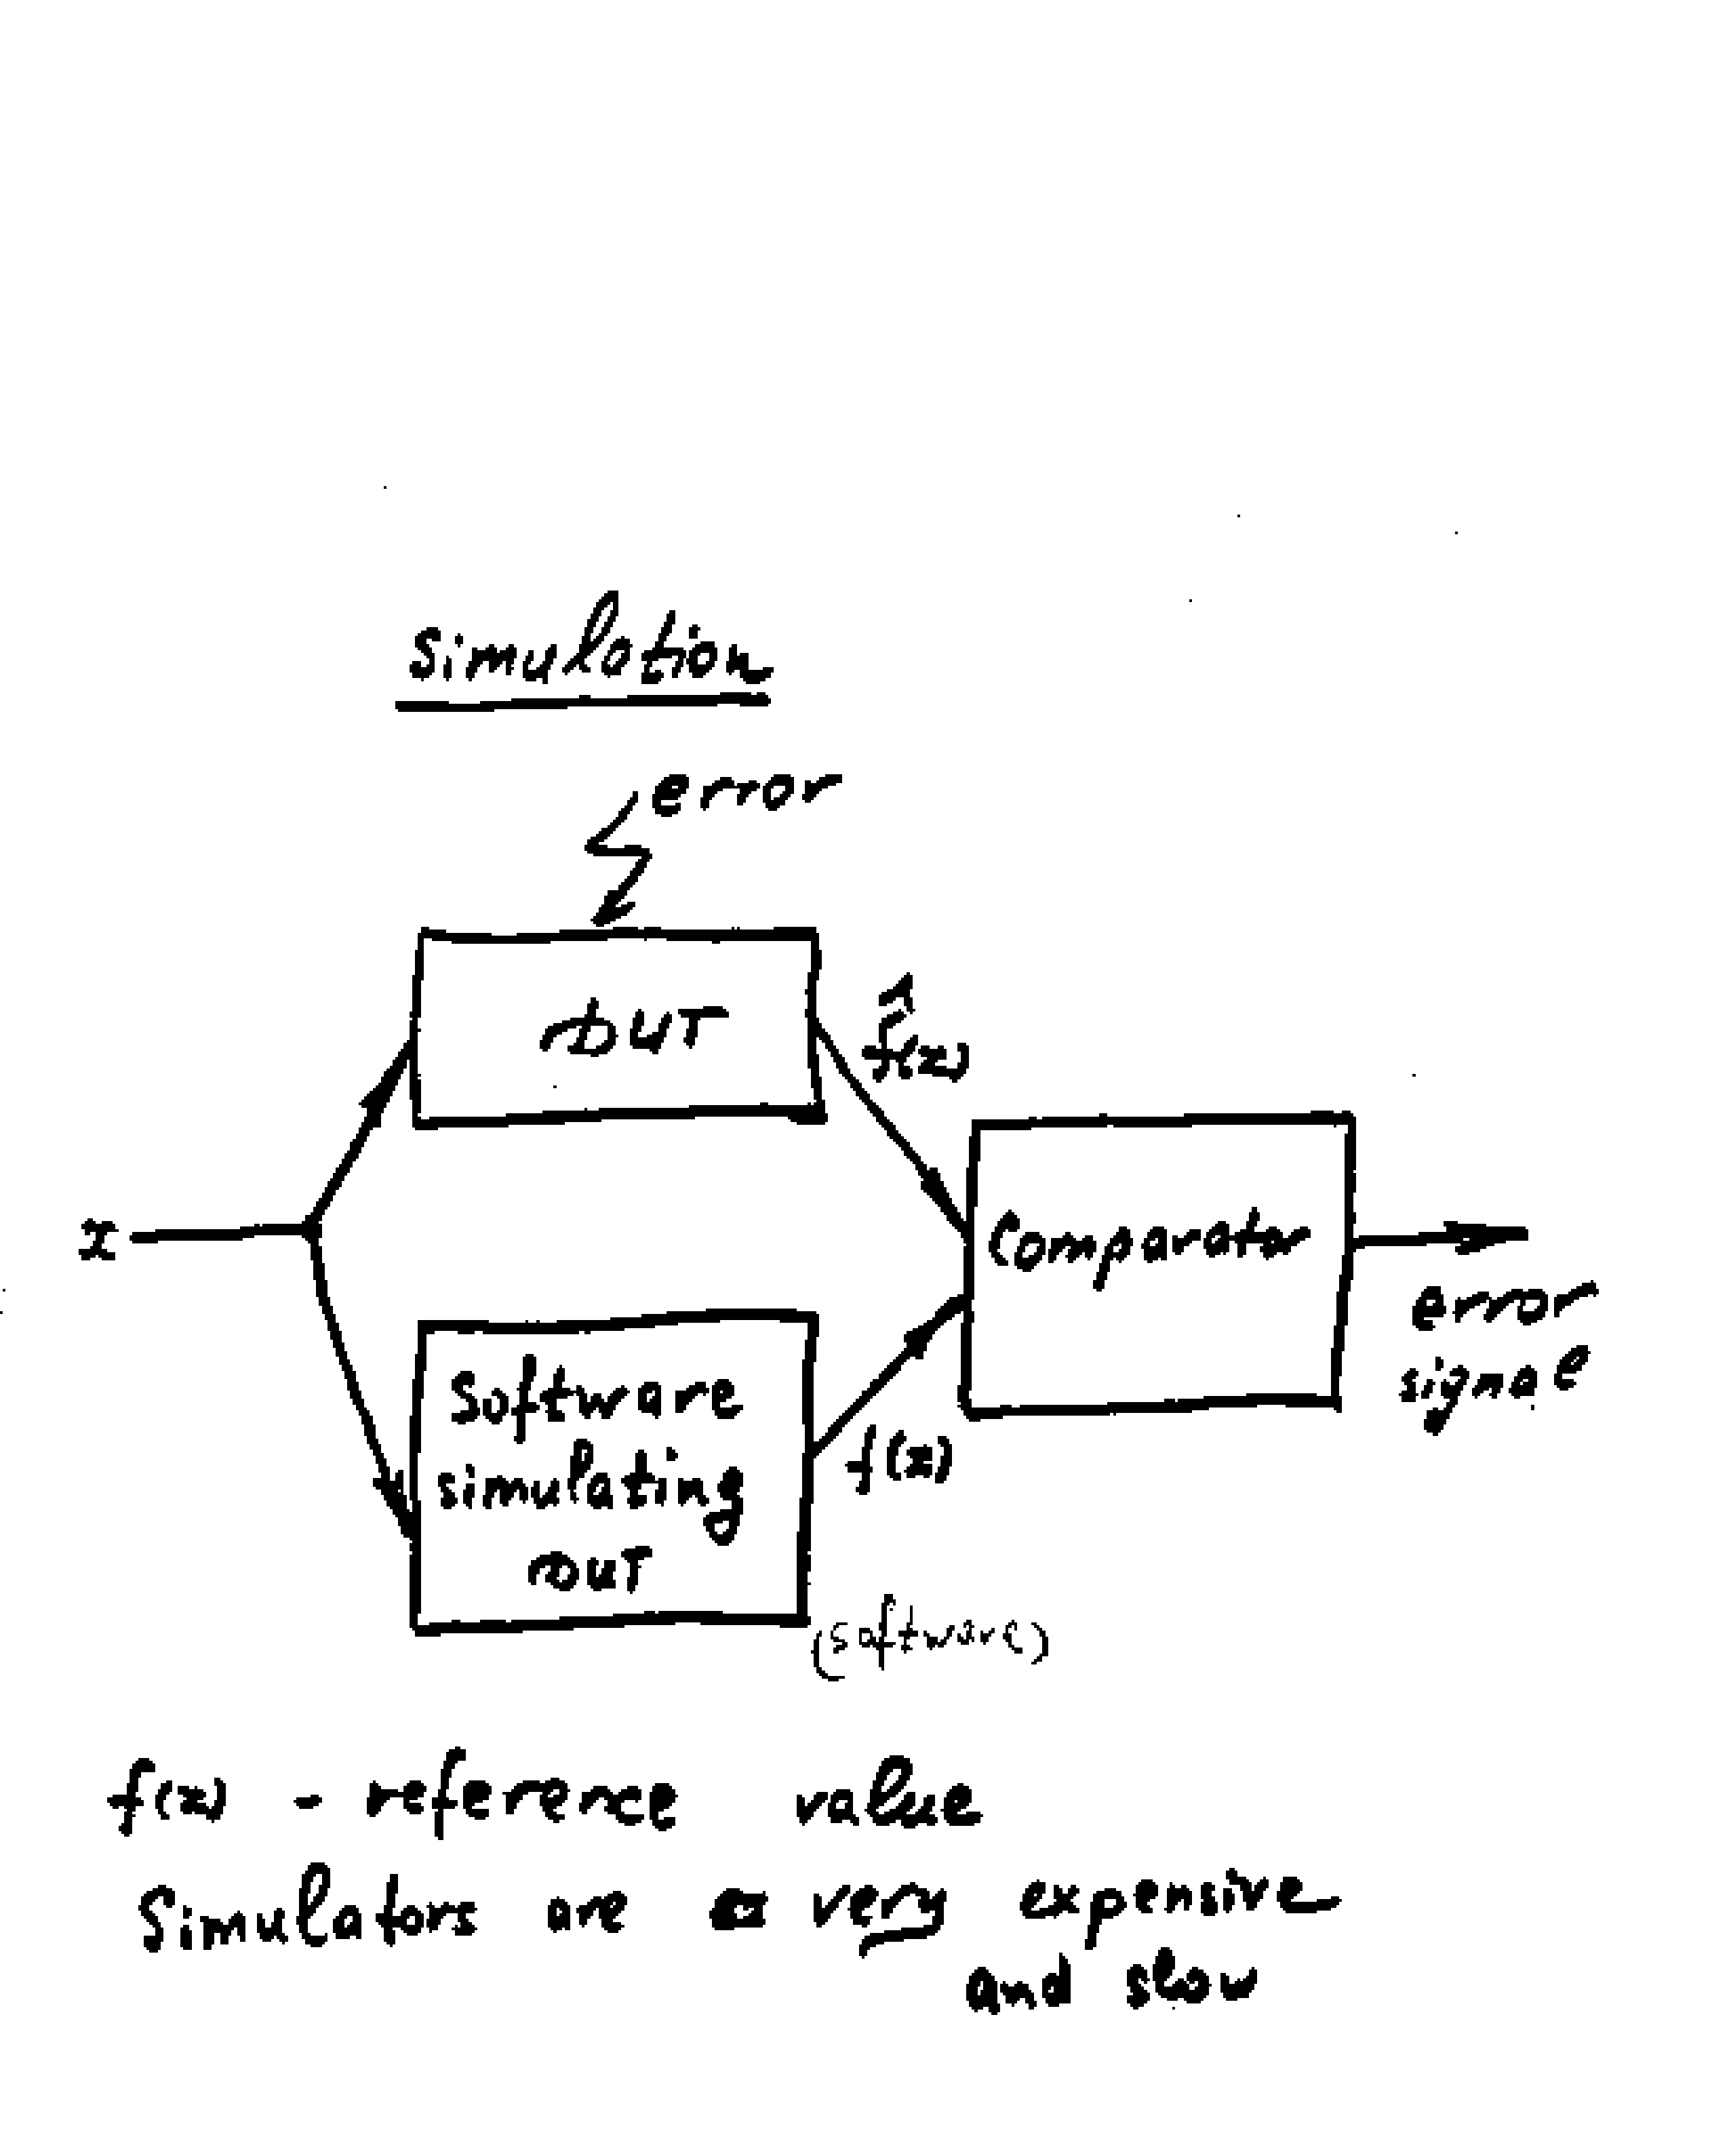 Simulation
error
DUT
f̂(x)
x
Comparator
error
signal
Software
simulating
DUT
f(x)
(software)
f(x) - reference value
Simulators are very expensive
and slow